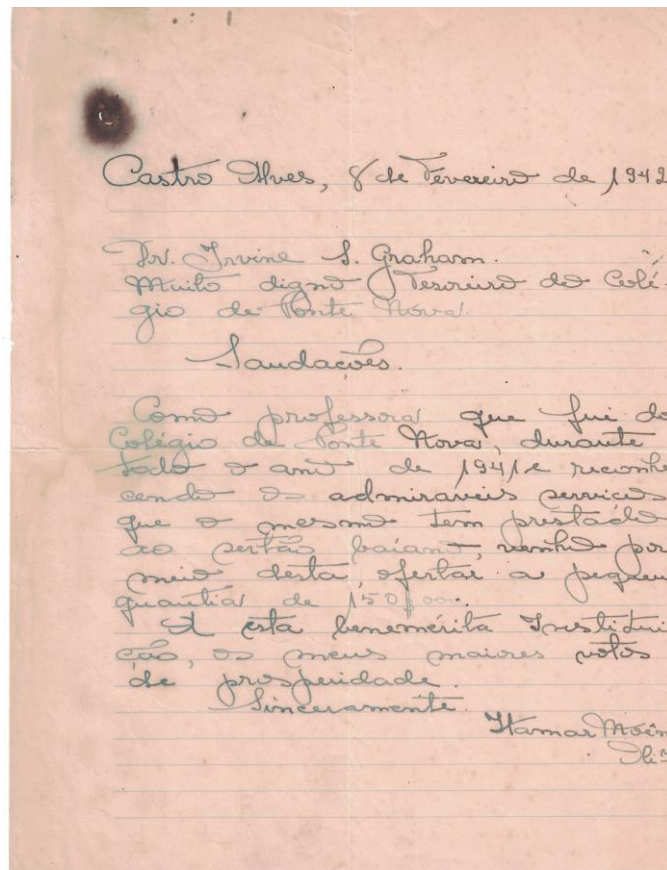 Castro Alves, 8 de Fevereiro de 1942
Dr. Irvine S. Graham.
Muito digno Tesoureiro do Colé-
gio de Ponte Nova.
Saudações.
Como professora que fui do
Colégio de Ponte Nova, durante
todo o ano de 1941 e reconhe
cendo os admiraveis serviços
que o mesmo tem prestado
ao sertão baiano, venho por
meio desta, ofertar a pequen
quantia de 150$000.
A esta benemérita Institui
ção, os meus maiores votos
de prosperidade.
Sinceramente.
Itamar